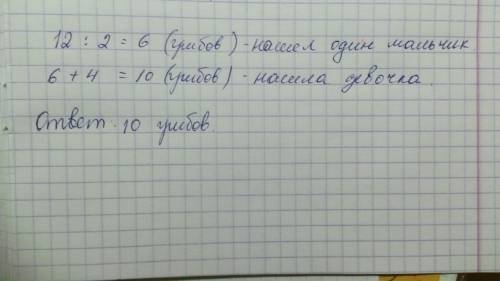 12 : 2 = 6 (грибов) - нашел один мальчик
6 + 4 = 10 (грибов) - нашла девочка.
Ответ. 10 грибов.